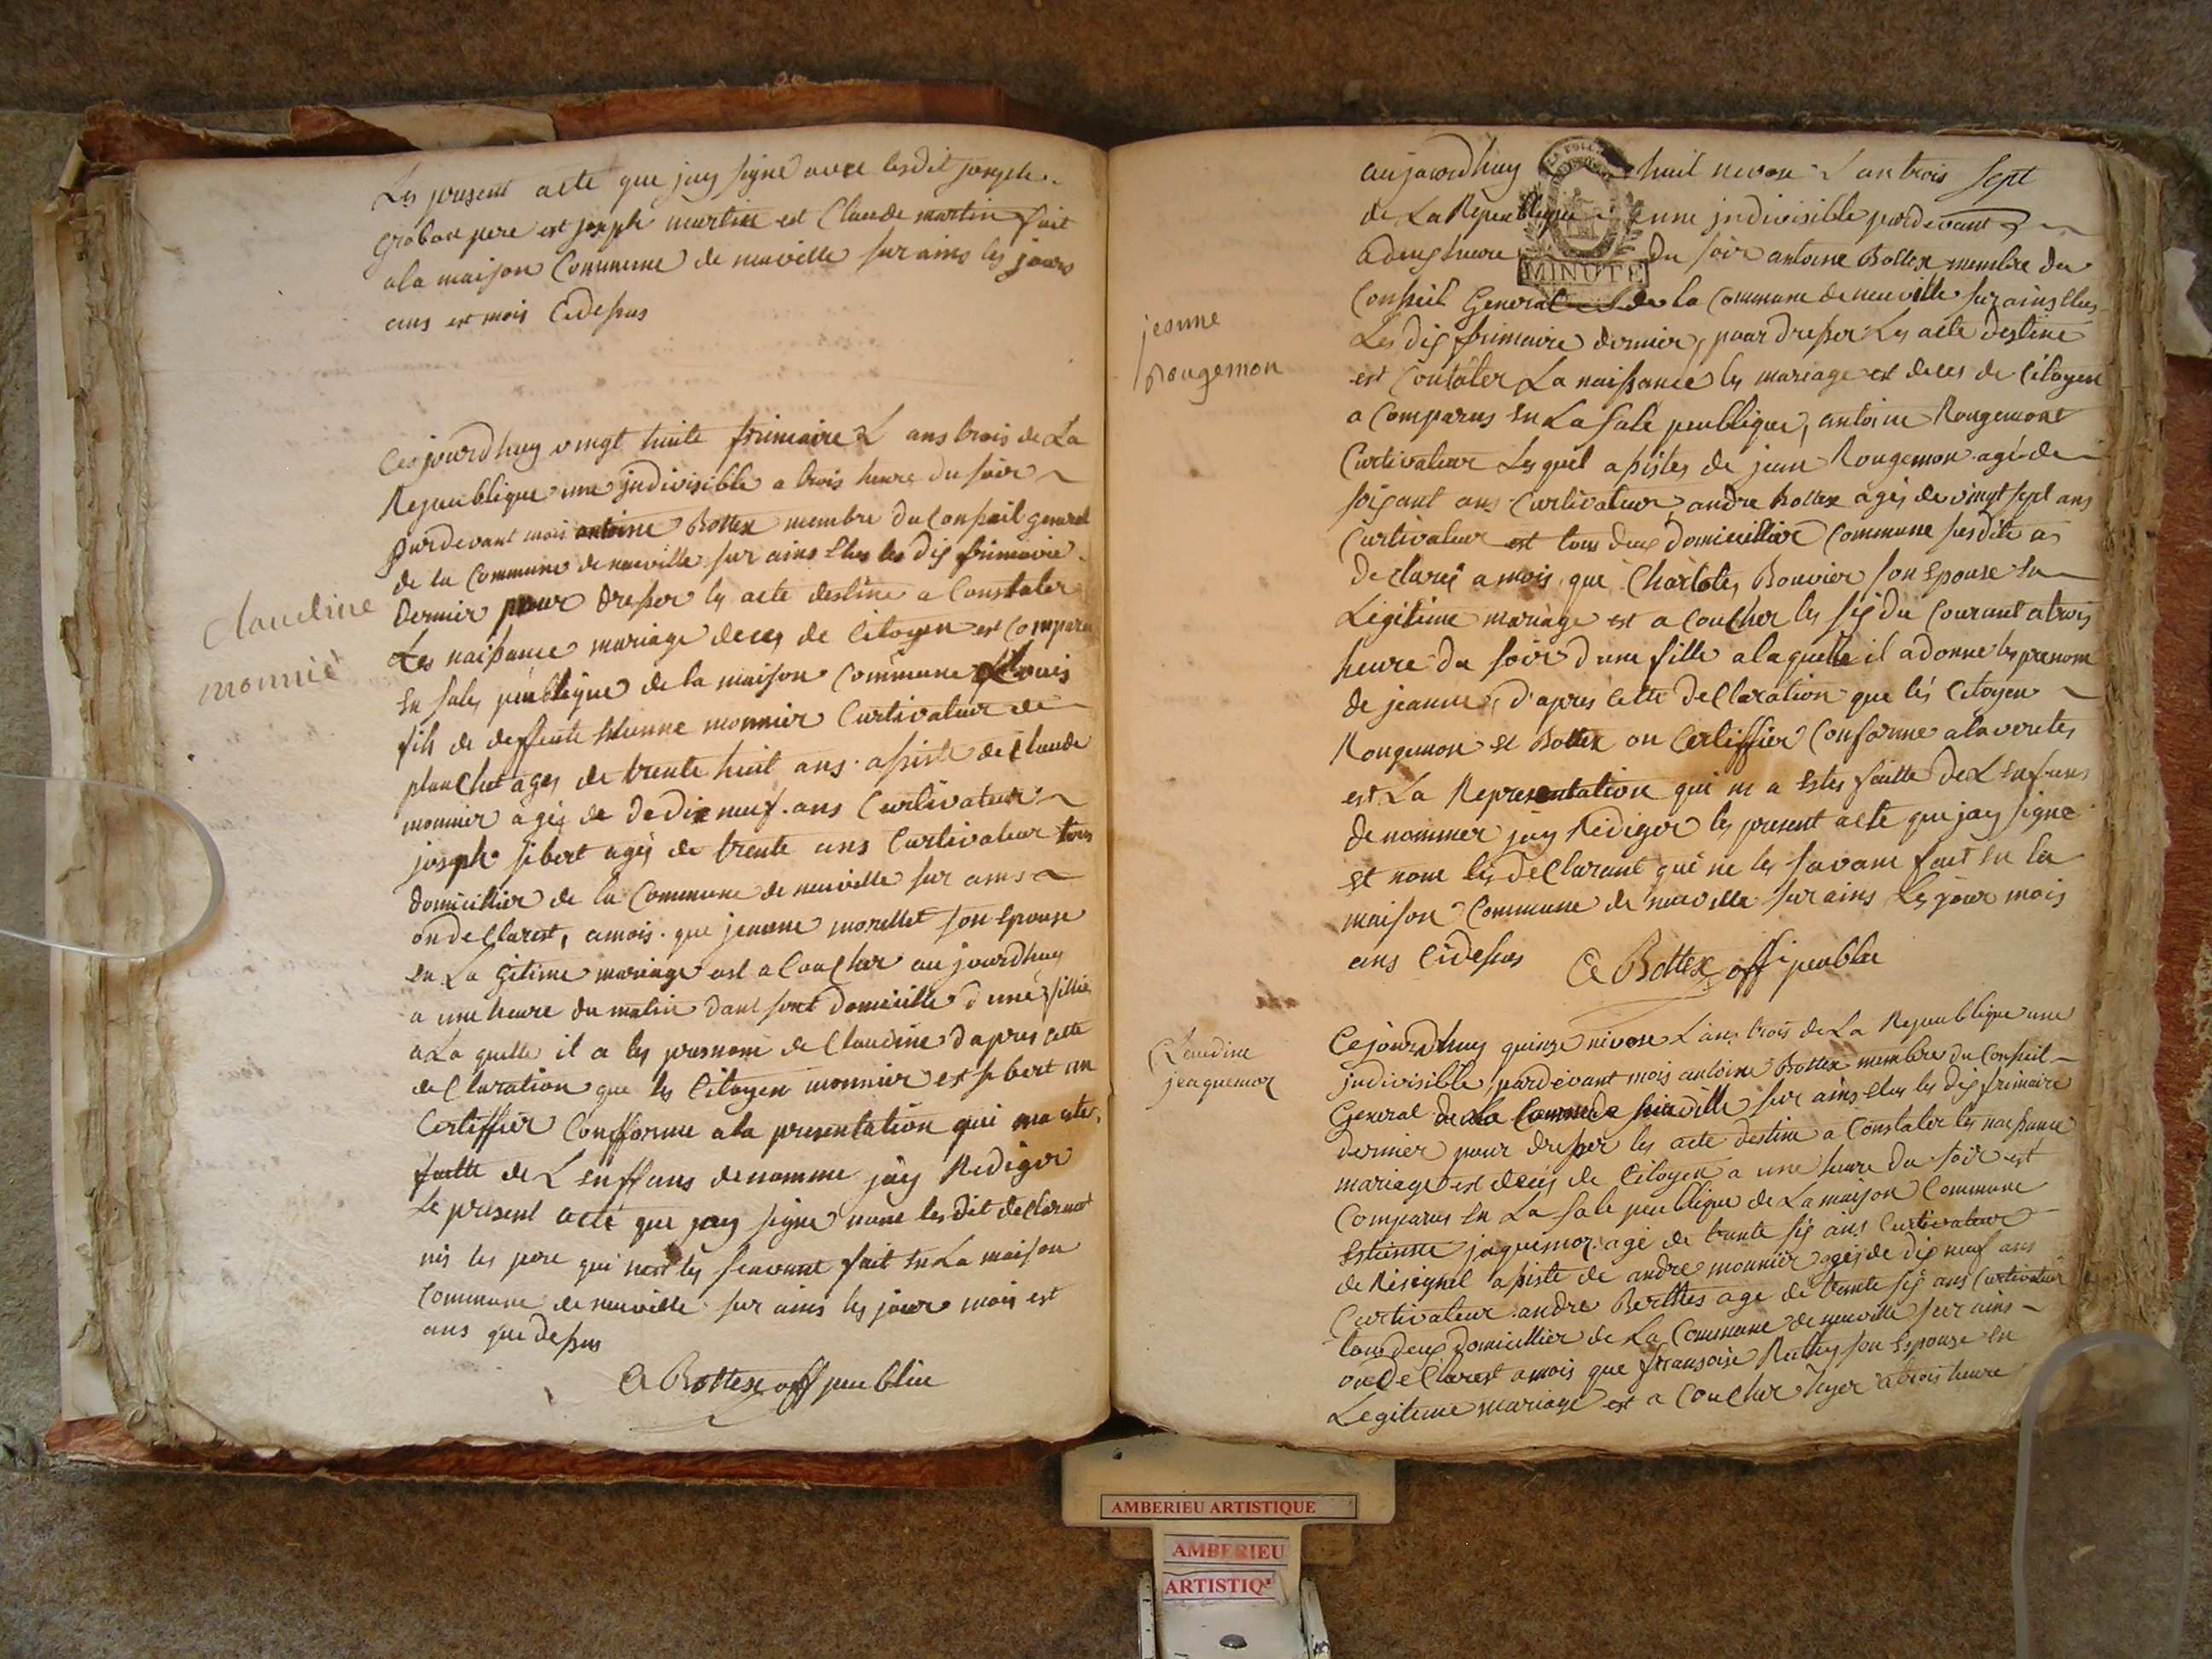 Les present acte que jay signé avec lesdit joseph
groboz pere est joseph martin est Claude martin fait
a la maison Commune de neuville sur ains les jours
ans est mois Cidessus
Claudine
monnié
Cejourdhuy vingt huite frimaire L ans trois de La
Republique une jndivisible a trois heure du soir
pardevant mois antoine Bottex membre du Conseil general
de la Commune de neuville sur ains Elus les dix frimaire
dernier pour dresser les acte destine a Constater
Les naissance mariage deces de Citoyen est Comparu
En sales peublique de la maison Commune
fils de deffente Etienne monnier Curtivateur de
planchet ages de trente huit ans assiste de Claude
monnier agés de de dix neuf ans Curtivateur
joseph sibert agés de trente ans Curtivateur tous
domicillier de la Commune de neuville sur ains
on declarest, amois que jeanne morellet son Epouse
En La gitime mariage est a Coucher aujourdhuy
a une heure du matin dant sont domicille d une fillie
a La quelle il a les presnom de Claudine dapres cette
declaration que les Citoyen monnier est sibert on
Certiffier Confforme a la presentation qui ma ete
faitte de L Enffans denomme jay Rediger
Le present acte que jay signe none les dit declarant
nis les pere qui les seavant fait En La maison
Commune de neuville sur ains les jour mois est
ans que dessus
A Bottex off peublic
jeanne
Rougemon
aujourdhuy huit nivose L an trois sept
de La Republique une jndivisible pardevant
a deux heure du soir antoine Bottex membre du
MINUTE
Conseil General de la Commune de neuville sur ains Elus
Les dix frimaire dernier, pour dresser Les acte destine
est Contater La naissance les mariage est deces de Citoyen
a Comparus En La sale peublique, antoine Rougemont
Curtivateur Lesquel assistes de jean Rougemon agé de
soixant ans Curtivateur andre Bottex agés de vingt sept ans
Curtivateur est tous deux domicillier Commune susdite a
declaré a mois que Charlotes Bouvier son Epouse En
Legitime mariage est a Coucher les six du Courant a trois
heure du soir d une fille a la quelle il a donne les prenom
de jeanne, d'apres cette declaration que les Citoyen
Rougemon et Bottex on Certiffier Conforme a la veretes
est La Representation qui m a Estes faitte de L Enfans
denommer jay Rediger les present acte que jay signe
et none les declarant que ne les savant fait En la
maison Commune de neuville sur ains Les jour mois
ans Cidessus
A Bottex offi peublic
Claudine
jeaquemoz
Cejourdhuy quinze nivose L ans trois de La Republique une
jndivisible, pardevant mois antoine Bottex membre du Conseil
General de La Commune neuville sur ains Elus les dix frimaire
dernier pour dresser les acte destine a Constater les naissance
mariage est deces de Citoyen a une heure du soir est
Comparus En La sale peublique de La maison Commune
Estienne jaquemoz agé de trente six ans Curtivateur
de Risignel assiste de andre monnier agés de dix neuf ans
Curtivateur andre Berthes age de trente six ans Curtivateur
tous deux domicillier de La Commune de neuville sur ains
on declarest a mois que fransoise Ruty son Espouse En
Legitime mariage est a Coucher hyer a trois heure
AMBERIEU ARTISTIQUE
AMBERIEU
ARTISTIQ